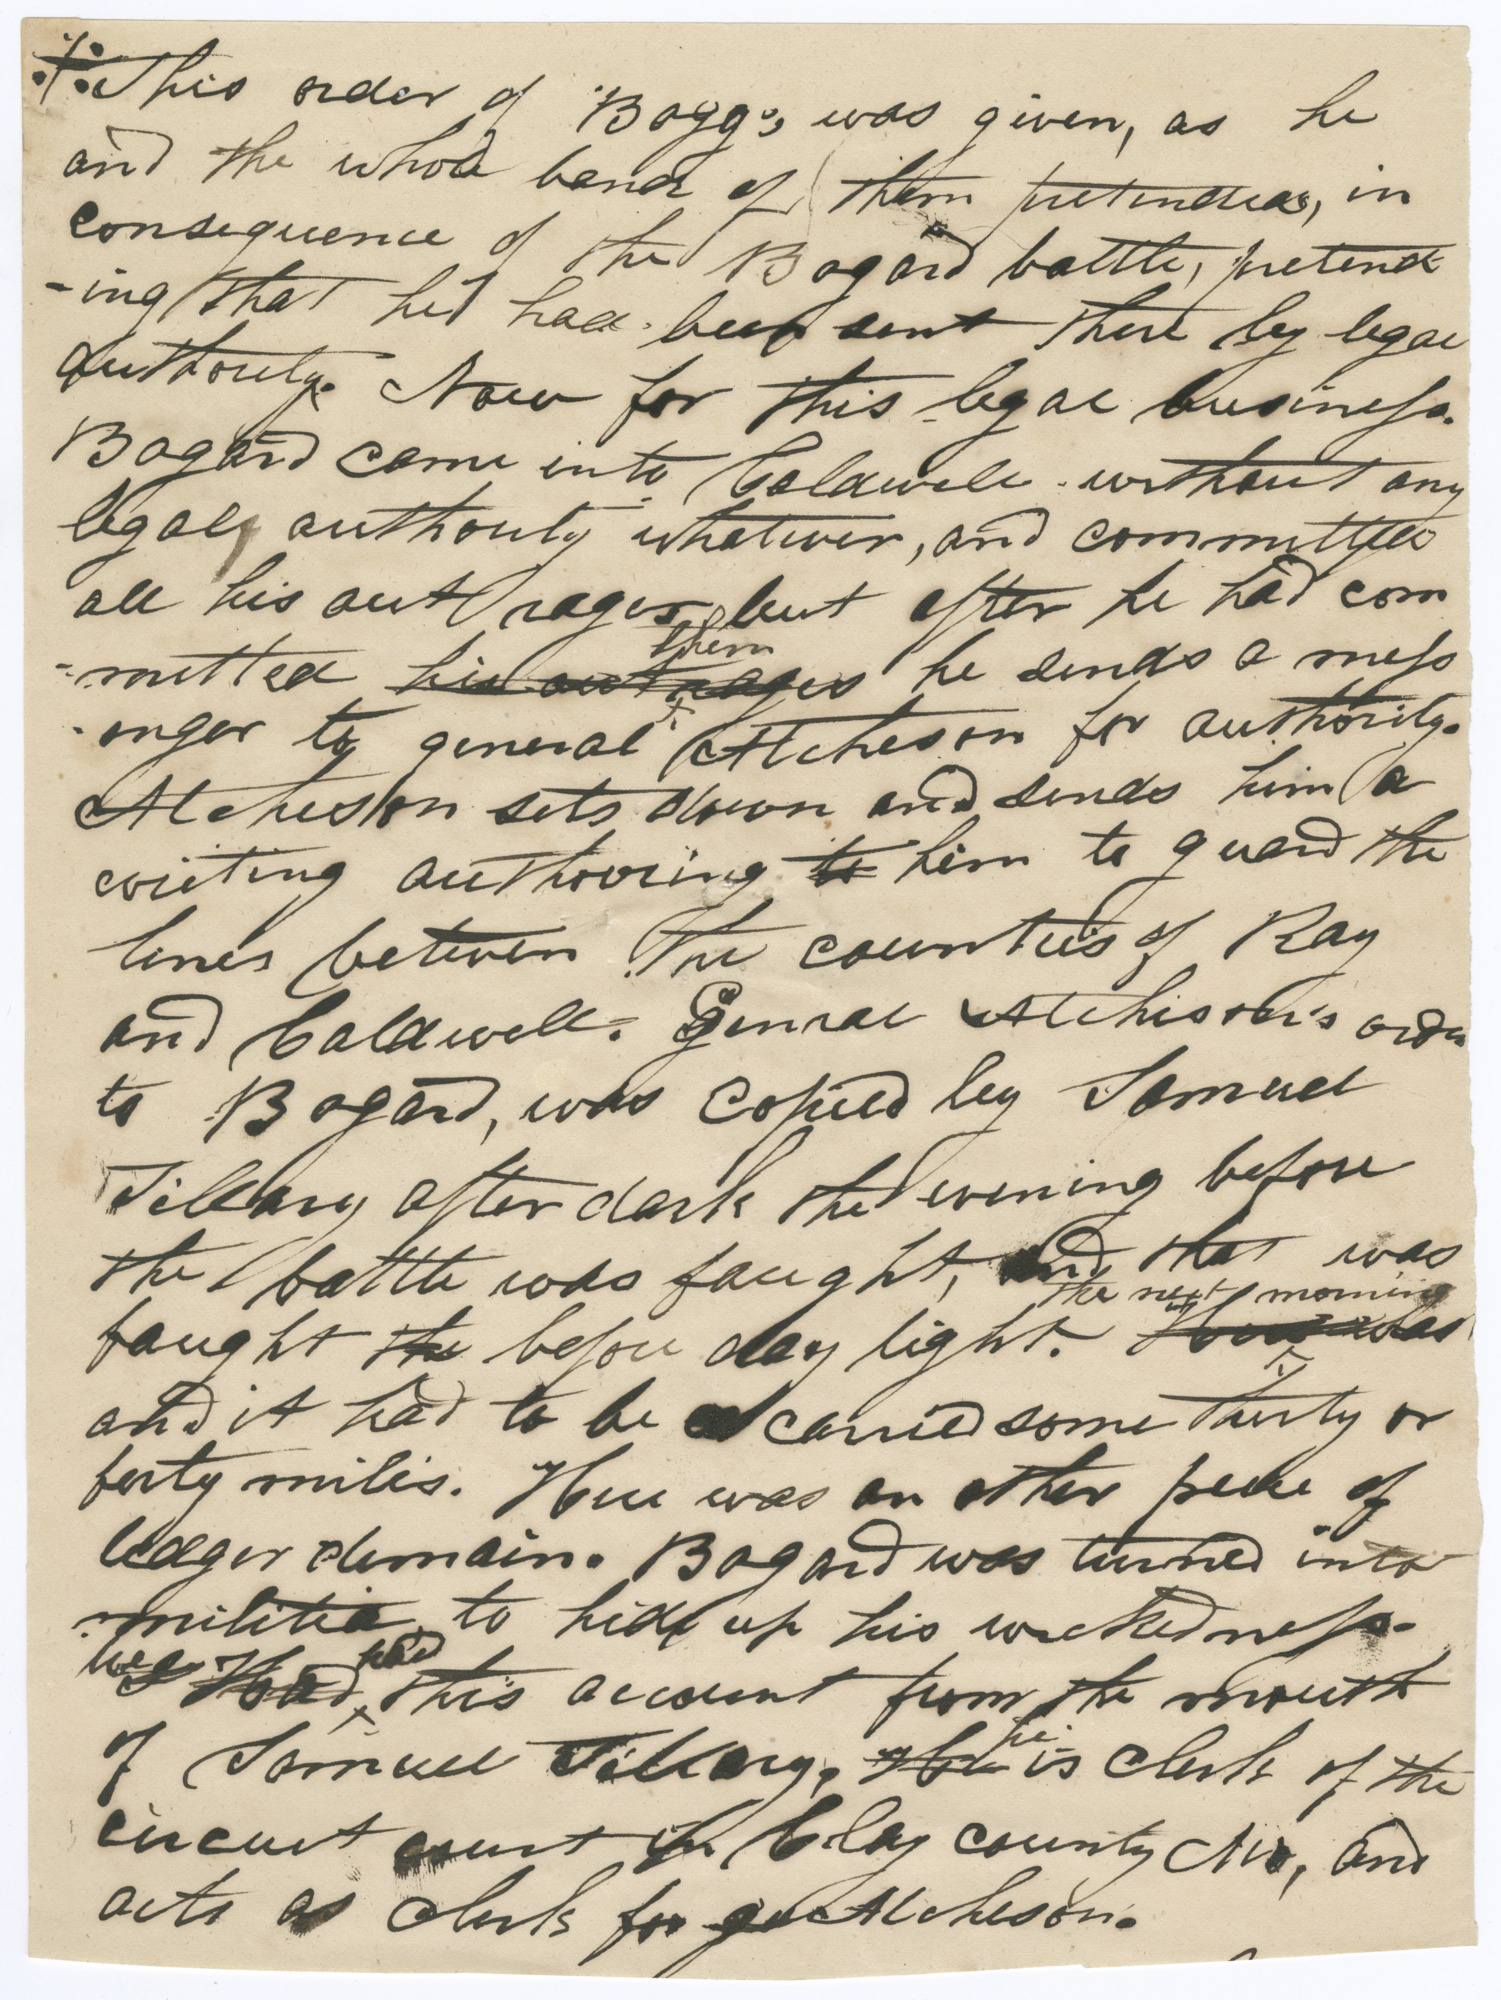 This order of Boggs, was given, as he
and the whole band of them pretended, in
consequence of the Bogard battle, pretend
-ing that he had been sent there by legal
authority. Now for this legal business.
Bogard came into Caldwell without any
legal authority whatever, and committed
all his outrages, but after he had com
-mitted his outrages them he sends a mess
-enger to general Atcheson for authority.
Atcheson sets down and sends him a
writing authorising to him to guard the
lines between the counties of Ray
and Caldwell. General Atchison's order
to Bogard, was copied by Samuel
Tillary after dark the evening before
the battle was faught, and that was
faught the before day light. the next morning
and it had to be carried some thirty or
forty miles. Here was an other peice of
ledger demain. Bogard was turned into
militia to hide up his wickedness.
We I Had had this account from the mouth
of Samuel Tillary, he is clerk of the
circuit court in Clay county Mo, and
acts as clerk for ge Atcheson.